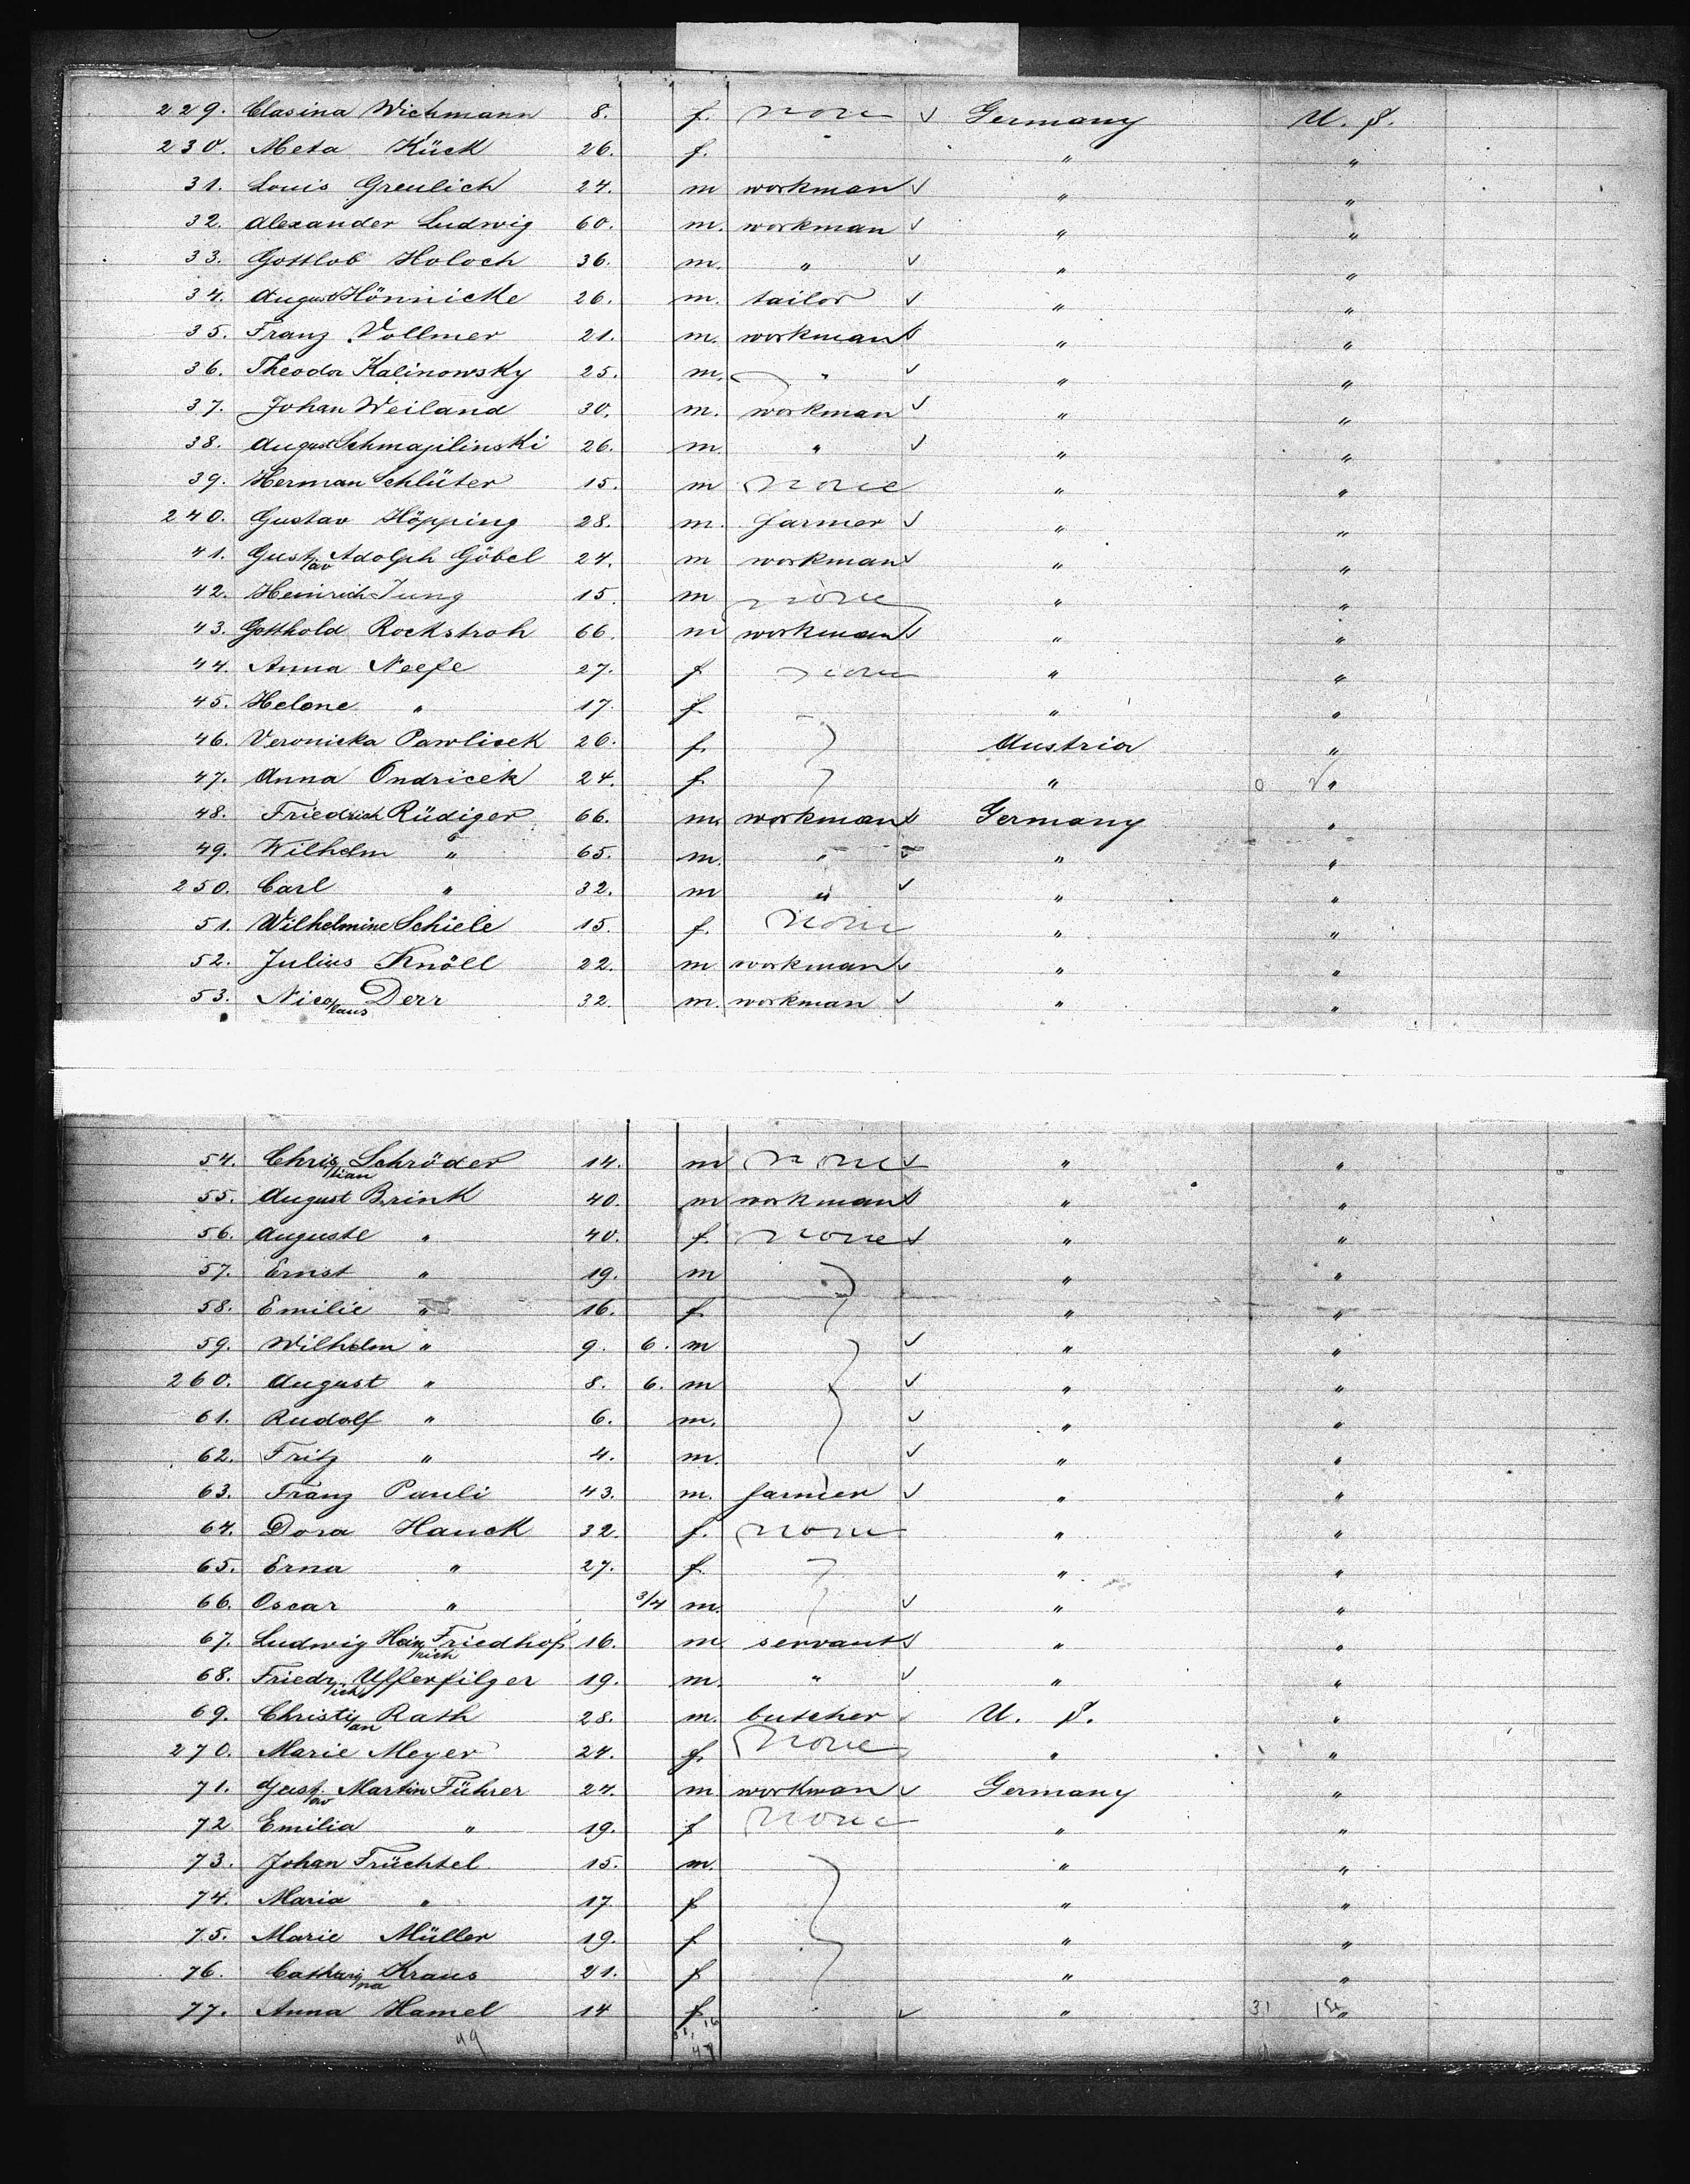 229. Clasina Wichmann 8. f. none ✓ Germany U. S.
230. Meta Kück 26. f. " "
31. Louis Greulich 24. m workman ✓ " "
32. Alexander Ludwig 60. m. workman ✓ " "
33. Gottlob Holoch 36. m. " ✓ " "
34. August Hönnicke 26. m. tailor ✓ " "
35. Franz Vollmer 21. m. workman ✓ " "
36. Theodor Kalinowsky 25. m. " ✓ " "
37. Johan Weiland 30. m. workman ✓ " "
38. August Schmajilinski 26. m. " ✓ " "
39. Herman Schlüter 15. m none " "
240. Gustav Höpping 28. m. farmer ✓ " "
41. Gust/av Adolph Göbel 24. m workman ✓ " "
42. Heinrich Jung 15. m none " "
43. Gotthold Rockstroh 66. m workman ✓ " "
44. Anna Neefe 27. f none " "
45. Helene " 17. f. " "
46. Veronicka Pawlicek 26. f. Austria "
47. Anna Ondricek 24. f. " "
48. Friedrich Rüdiger 66. m. workman ✓ Germany "
49. Wilhelm " 65. m. " ✓ " "
250. Carl " 32. m " ✓ " "
51. Wilhelmine Schiele 15. f. none " "
52. Julius Knöll 22. m workman ✓ " "
53. Nico/laus Derr 32. m. workman ✓ " "
54. Chris/tian Schröder 14. m none ✓ " "
55. August Brink 40. m workman ✓ " "
56. Auguste " 40. f. none ✓ " "
57. Ernst " 19. m " "
58. Emilie " 16. f. " "
59. Wilhelm " 9. 6. m ✓ " "
260. August " 8. 6. m ✓ " "
61. Rudolf " 6. m. ✓ " "
62. Fritz " 4. m. ✓ " "
63. Franz Pauli 43. m. farmer ✓ " "
64. Dora Hauck 32. f. none " "
65. Erna " 27. f. " "
66. Oscar " 3/4 m. ✓ " "
67. Ludwig Hein/rich Friedhof 16. m servant ✓ " "
68. Friedr/ich Ufferfilger 19. m. " ✓ " "
69. Christi/an Rath 28. m. butcher ✓ U. S. "
270. Marie Meyer 24. f. none " "
71. Gust/av Martin Führer 24. m workman ✓ Germany "
72 Emilia " 19. f none " "
73. Johan Früchtel 15. m. " "
74. Maria " 17. f " "
75. Marie Müller 19. f " "
76. Cathari/na Kraus 21. f " "
77. Anna Hamel 14 f. ✓ " 31 "
49